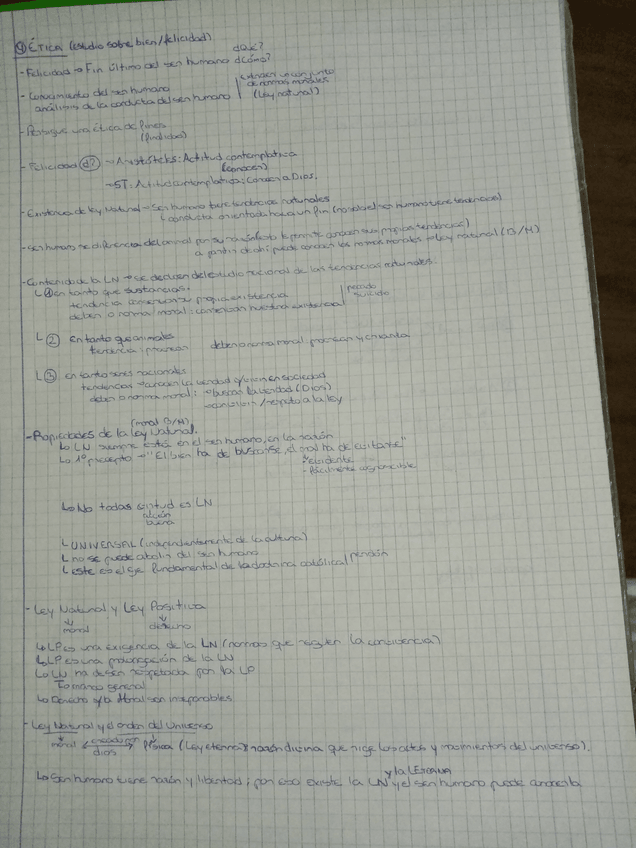 ④ ÉTICA (estudio sobre bien/felicidad)
¿Qué?
- Felicidad → Fin último del ser humano ¿Cómo?
- Conocimiento del ser humano
análisis de la conducta del ser humano
conocen un conjunto
de normas morales
(Ley natural)
- Persigue una ética de fines
(finalidad)
- Felicidad ¿? → Aristóteles: Actitud contemplativa
(conocer)
→ ST: Actitud contemplativa: Conocer a Dios.
- Existencia de ley Natural → Ser humano tiene tendencias naturales
conducta orientada hacia un fin (no sólo el ser humano tiene tendencias)
- ser humano se diferencia del animal por su racionalidad (le permite conocer sus propias tendencias)
a partir de ahí puede conocer las normas morales → Ley natural (B/M)
- Contenido de la LN → se deducen del estudio racional de las tendencias naturales.
↳ ① en tanto que sustancias.
tendencia a conservar su propia existencia
deber o norma moral: conservar nuestra existencia
pecado
suicidio
↳ ② En tanto que animales
tendencia: procrear deber o norma moral procrear y crianza
↳ ③ en tanto seres racionales
tendencias → conocer la verdad y vivir en sociedad
deber o norma moral: → buscar la verdad (Dios)
→ justicia/respeto a la ley
(moral B/M)
- Propiedades de la Ley Natural.
↳ LN siempre está en el ser humano, en la razón
↳ 1º precepto → "El bien ha de buscarse, el mal ha de evitarse"
- evidente
- fácilmente cognoscible
↳ No todas virtud es LN
acción
buena
↳ UNIVERSAL (independientemente de la cultura)
↳ no se puede abolir del ser humano
↳ este es el eje fundamental de la doctrina católica / perdón
- Ley Natural y Ley Positiva
↓ ↓
moral derecho
↳ LP es una exigencia de la LN (normas que regulen la convivencia)
↳ LP es una prolongación de la LN
↳ LN ha de ser respetada por la LP
marco general
↳ Derecho y la Moral son inseparables
- Ley Natural y el orden del Universo
moral ← creado por → física (Ley eterna) razón divina que rige los actos y movimientos del universo).
dios
y la L ETERNA
↳ Ser humano tiene razón y libertad; por eso existe la LN y el ser humano puede conocerla